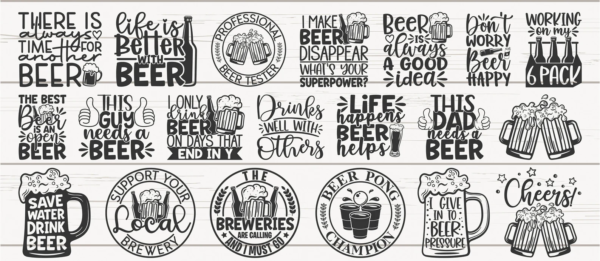 THERE IS
always
TIME FOR
another
BEER
life is
Better
WITH
BEER
PROFESSIONAL
BEER TESTER
I MAKE
BEER
DISAPPEAR
WHAT'S YOUR
SUPERPOWER?
Beer
IS
always
A GOOD
idea
Don't
WORRY
Beer
HAPPY
WORKING
on my
6 PACK
THE BEST
Beer
IS AN
open
BEER
THIS
GUY
needs a
BEER
I ONLY
drink
BEER
ON DAYS THAT
END IN Y
Drinks
WELL WITH
Others
LIFE
happens
BEER
helps
THIS
DAD
needs a
BEER
SAVE
WATER
DRINK
BEER
SUPPORT YOUR
Local
BREWERY
THE
BREWERIES
ARE CALLING
AND I MUST GO
BEER PONG
CHAMPION
I GIVE
IN TO
BEER
PRESSURE
Cheers!